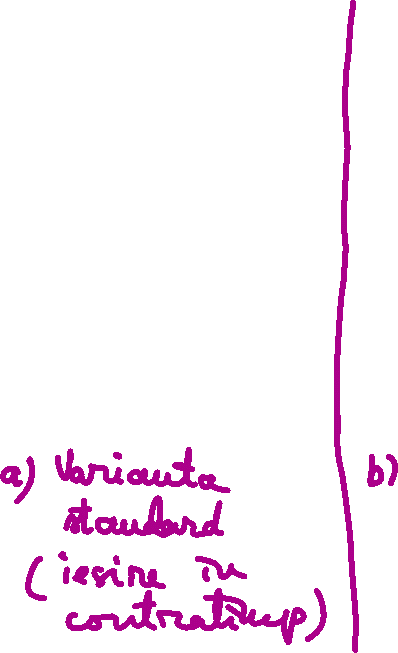 a) Varianta
standard
(iesire in
contratimp)
b)